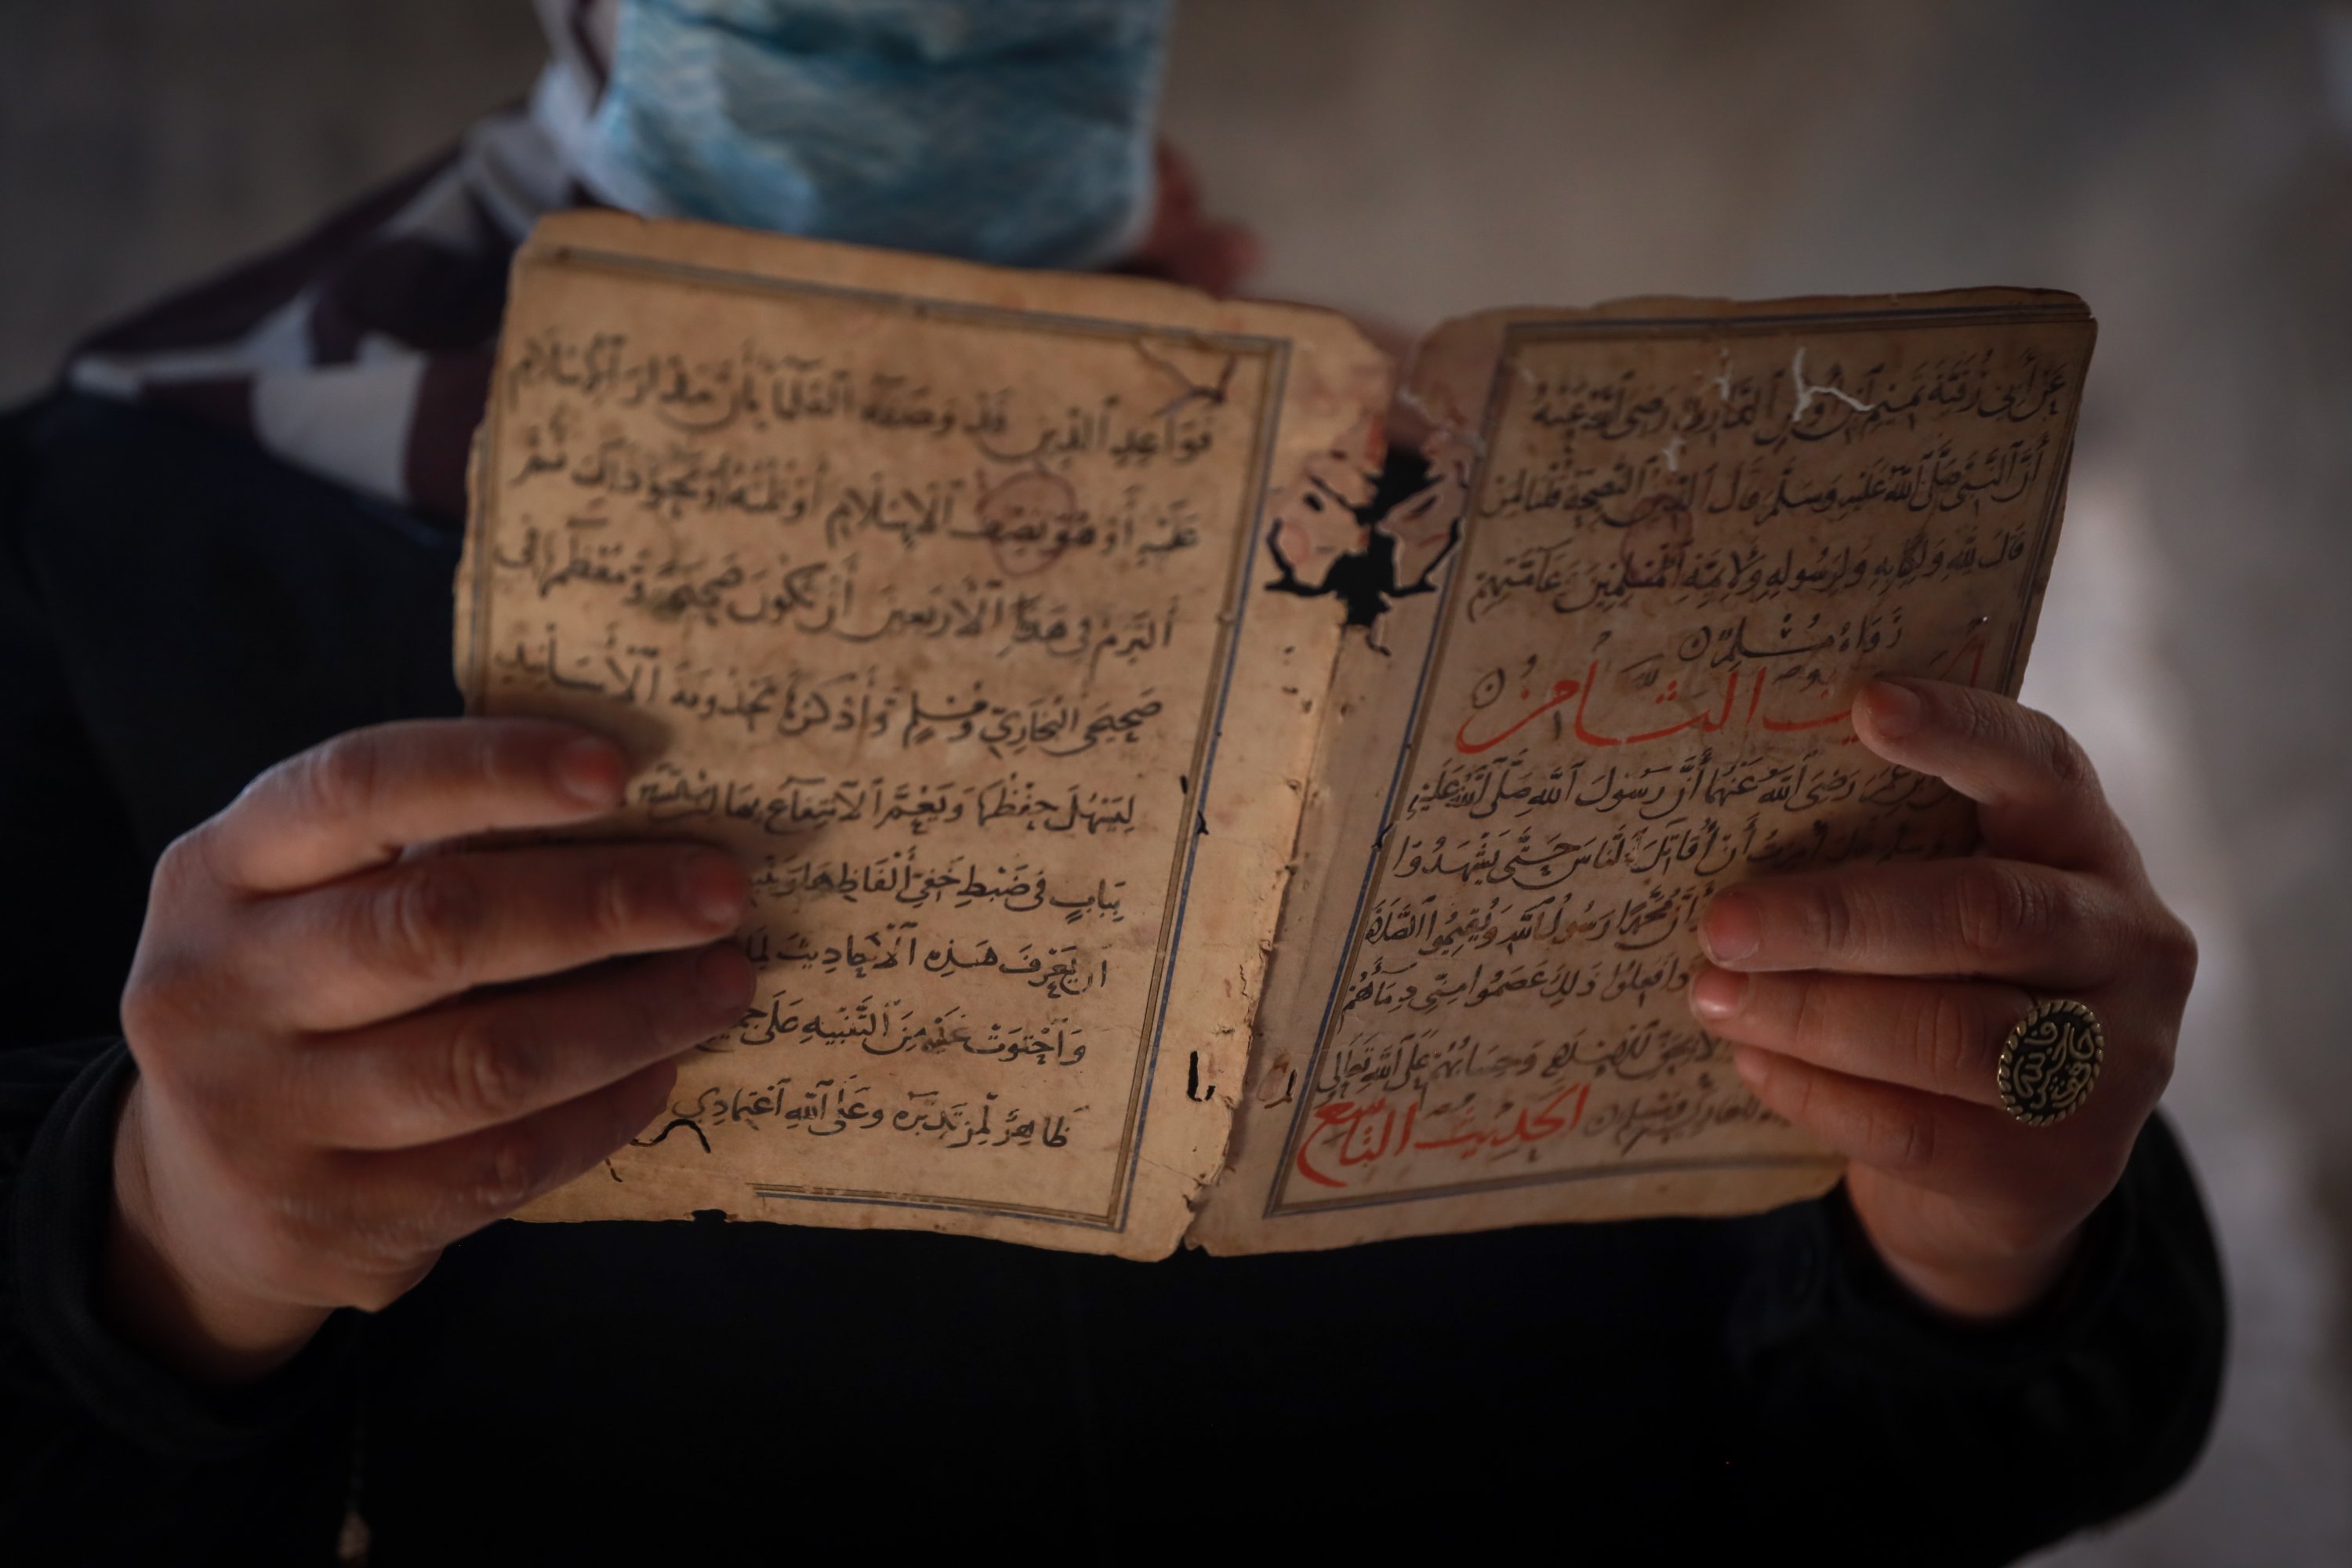 عَنْ أَبِي رُقَيَّةَ تَمِيمِ بْنِ أَوْسٍ الدَّارِيِّ رَضِيَ اللَّهُ عَنْهُ
أَنَّ النَّبِيَّ صَلَّى اللَّهُ عَلَيْهِ وَسَلَّمَ قَالَ الدِّينُ النَّصِيحَةُ قُلْنَا لِمَنْ
قَالَ لِلَّهِ وَلِكِتَابِهِ وَلِرَسُولِهِ وَلِأَئِمَّةِ الْمُسْلِمِينَ وَعَامَّتِهِمْ
رَوَاهُ مُسْلِمٌ
الثَّامِنُ
عُمَرَ رَضِيَ اللَّهُ عَنْهُمَا أَنَّ رَسُولَ اللَّهِ صَلَّى اللَّهُ عَلَيْهِ
أُمِرْتُ أَنْ أُقَاتِلَ النَّاسَ حَتَّى يَشْهَدُوا
وَأَنَّ مُحَمَّدًا رَسُولُ اللَّهِ وَيُقِيمُوا الصَّلَاةَ
ذَلِكَ عَصَمُوا مِنِّي دِمَاءَهُمْ
وَحِسَابُهُمْ عَلَى اللَّهِ تَعَالَى
الْحَدِيثُ التَّاسِعُ
قَوَاعِدِ الدِّينِ قَدْ وَصَفَهُ الْعُلَمَاءُ بِأَنَّ مَدَارَ الْإِسْلَامِ
عَلَيْهِ أَوْ هُوَ نِصْفُ الْإِسْلَامِ أَوْ ثُلُثُهُ أَوْ نَحْوُ ذَلِكَ ثُمَّ
أَلْتَزِمُ فِي هَذِهِ الْأَرْبَعِينَ أَنْ تَكُونَ صَحِيحَةً وَمُعْظَمُهَا فِي
صَحِيحَيِ الْبُخَارِيِّ وَمُسْلِمٍ وَأَذْكُرُهَا مَحْذُوفَةَ الْأَسَانِيدِ
لِيَسْهُلَ حِفْظُهَا وَيَعُمَّ الِانْتِفَاعُ بِهَا
بِبَابٍ فِي ضَبْطِ خَفِيِّ أَلْفَاظِهَا
أَنْ يَعْرِفَ هَذِهِ الْأَحَادِيثَ لِمَا
وَاحْتَوَتْ عَلَيْهِ مِنَ التَّنْبِيهِ عَلَى
ظَاهِرٌ لِمَنْ تَدَبَّرَهُ وَعَلَى اللَّهِ اعْتِمَادِي